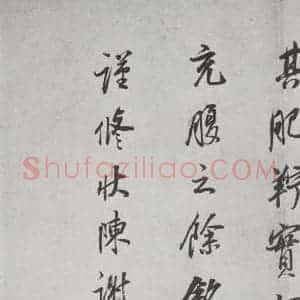 其肥羜實
充腹之餘
謹修狀陳謝
Shufaziliao.COM